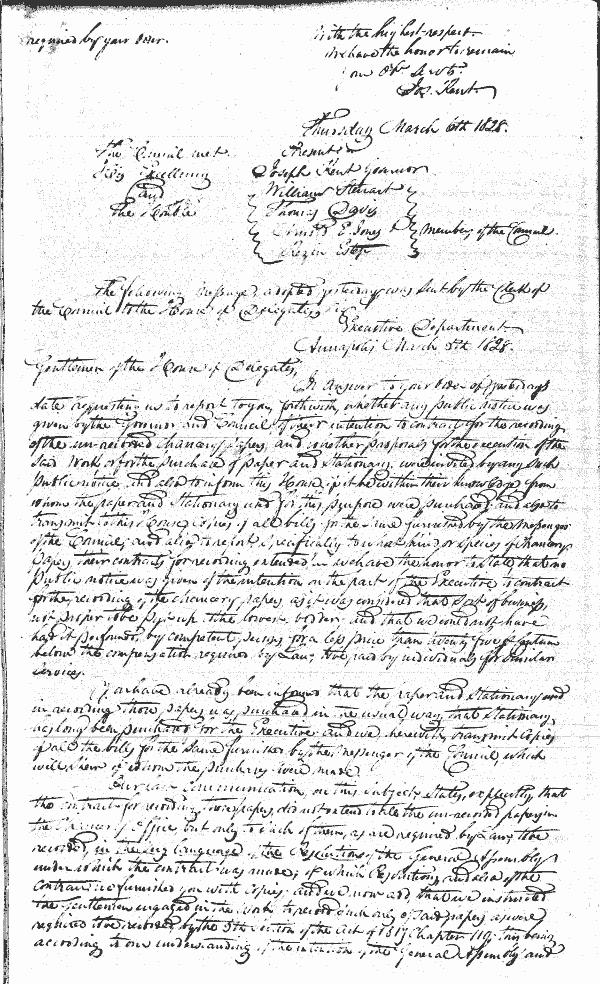 required by your order.
With the highest respect
We have the honor to remain
your Obt. Servts.
Jos. Kent
Thursday March 6th 1828.
The Council met Present
His Excellency Joseph Kent Governor
and William Stewart
The Honble Thomas Davis
E. Jones & members of the Council.
Rezin Estep
The following message, adopted yesterday was sent by the clerk of
the Council to the House of Delegates
Executive Department
Annapolis March 5th 1828.
Gentlemen of the House of Delegates,
In answer to your order of yesterdays
date requesting us to report to you forthwith, whether any public notice was
given by the Governor and Council of their intention to contract for the recording
of the un-recorded Chancery papers, and whether proposals for the execution of the
said work or for the purchase of paper and stationary, were invited by any such
public notice, and also to inform this House, if it be within their knowledge from
whom the paper and stationary used for this purpose were purchased and also to
transmit to this House, copies of all bills for the same furnished by the Messenger
of the Council, and also to report specifically to what kind or species of Chancery
papers, their contracts for recording extended, we have the honor to state, that no
public notice was given of the intention on the part of the Executive to contract
for the recording of the chancery papers, as it was considered that sort of business,
not proper to be put up to the lowest bidder, and that we could not have
had it performed, by competent persons for a less price than twenty five per centum
below the compensation required by Law, to be paid by individuals for similar
services.
You have already been informed that the paper and stationary used
in recording those papers was purchased in the usual way, that stationary
has long been purchased for the Executive and we herewith, transmit copies
of all the bills for the same furnished by the messenger of the Council, which
will shew of whom the purchases were made.
Our Communication, on this subject, states, explicitly, that
the contract for recording these papers, did not extend to all the un-recorded papers in
the Chancery Office, but only to such of them, as are required by Law, to be
recorded, in the very language of the Resolution of the General Assembly
under which the contract was made, of which Resolution, and also of the
contract we furnished you with copies; and we now add, that we instructed
the Gentlemen engaged in the work to record such only of said papers as were
required to be recorded by the 5th section of the act of 1817 Chapter 119; this being
according to our understanding of the intention of the General Assembly and